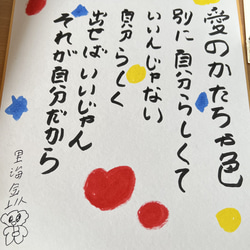 愛のかたちや色
別に自分らしくて
いいんじゃない
自分らしく
出せばいいじゃん
それが自分だから
里海